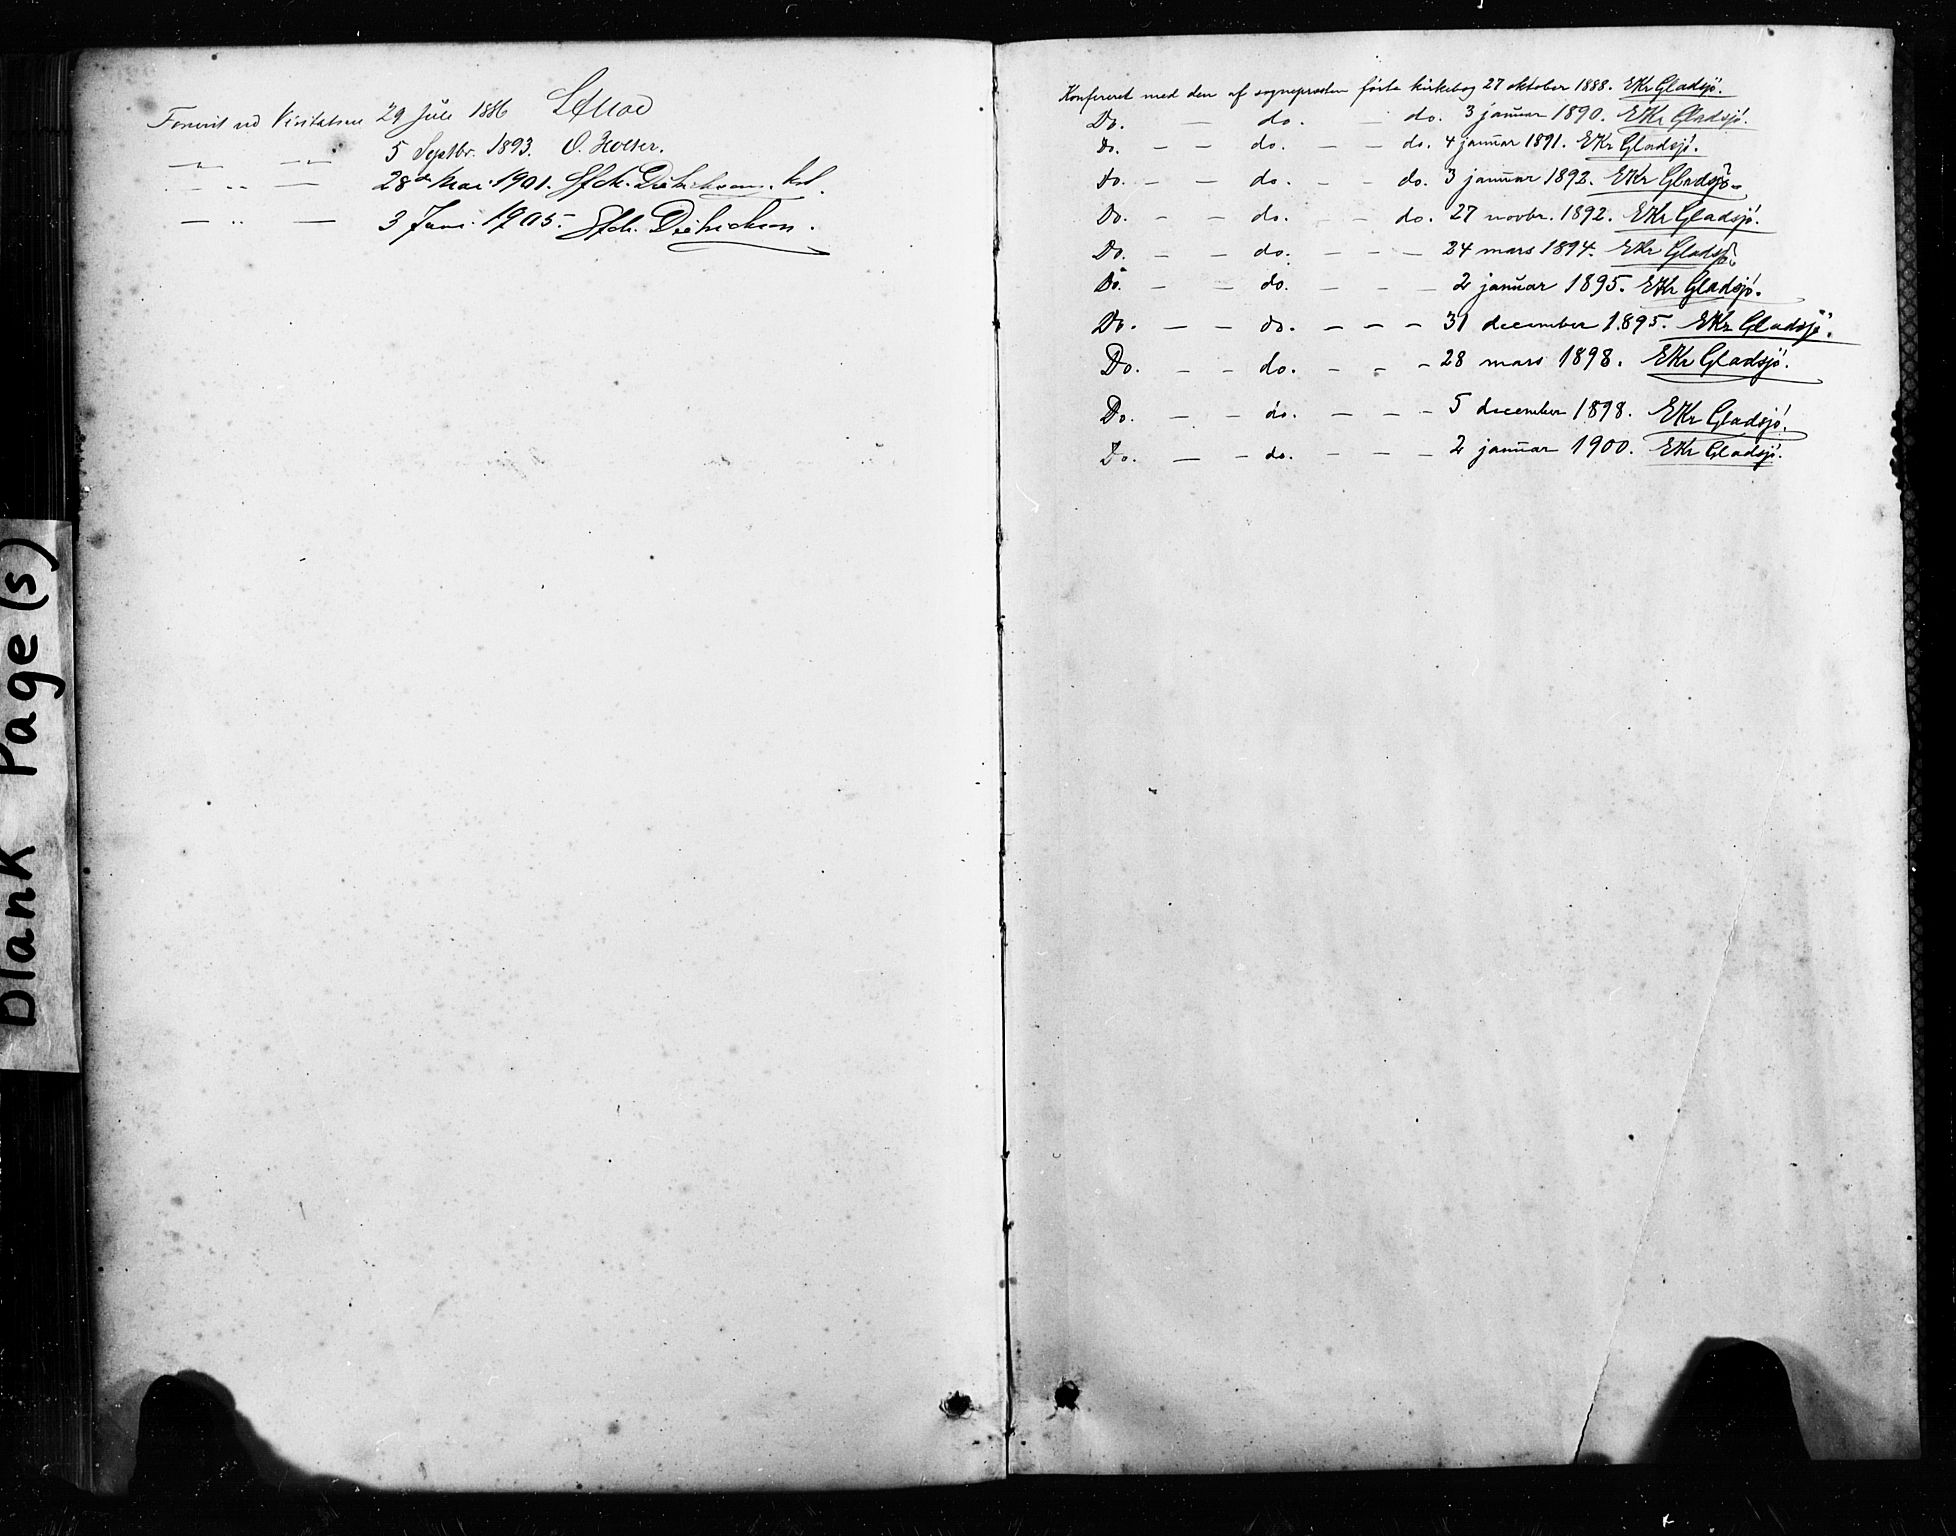 Blank Page(s)
Forevist ved Visitatsen 29 Juli 1886
— „ — — „ — 5 Septbr. 1893. O. Holter.
— „ — 28de Mai. 1901. Dietrichson.
— „ — 3 Juni. 1905. Dietrichson.
Konfereret med den af sognepresten førte kirkebog 27 oktober 1888. EKr Gladsjö.
Do. — do. — do. 3 januar 1890. EKr Gladsjö.
Do. — — do. — — do. 4 januar 1891. EKr Gladsjö.
Do. — — do. — — do. 3 januar 1892. EKr Gladsjö.
Do. — — do. — — do. 27 novbr. 1892. EKr Gladsjö.
Do. — — do. — — — 24 mars 1894. EKr Gladsjö.
Do. — — do. — — — 2 januar 1895. EKr Gladsjö.
Do. — — do. — — — 31 december 1895. EKr Gladsjö.
Do. — — do. — — — 28 mars 1898. EKr Gladsjö.
Do. — — do. — — — 5 december 1898. EKr Gladsjö.
Do. — — do. — — — 2 januar 1900. EKr Gladsjö.